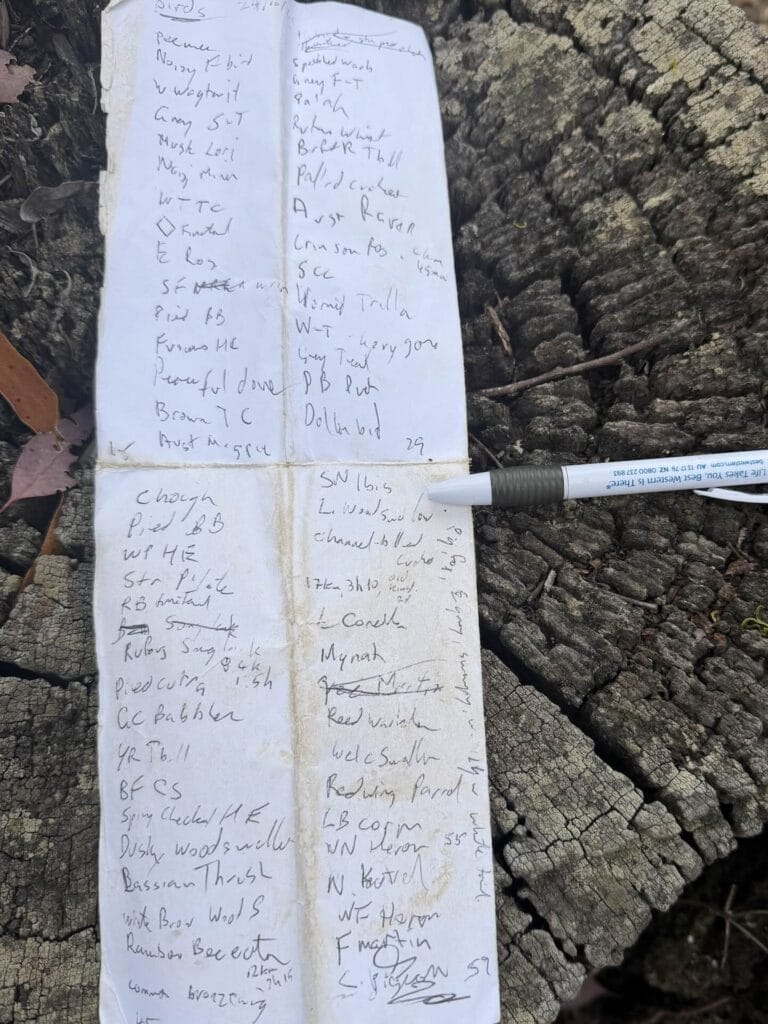 Birds 29/10/
Peewee
Noisy F bird
W Wagtail
Grey S-T
Musk Lori
Noisy Miner
W T T C
Firetail
E Ros
SF wren
Pied BB
Fuscous HE
Peaceful dove
Brown T C
Aust Magpie
15
Chough
Pied BB
WP HE
Str P'lote
RB firetail
Rufous Songlark
4k
1.5h
Pied Curra
GC Babbler
YR Tbill
BF CS
Spiny Cheeked HE
Dusky woodswallow
Bassian Thrush
White Brow Wood S
Rainbow Beeeater
12km
2h 15
Common Bronzewing
Speckled warb
Grey F-T
Gal'h
Rufous Whist
Buff R Tbill
Pallid cuckoo
Aust Raven
Crimson Ros
6km
45min
SCC
Varied Trilla
W-T Gerygone
Grey Teal
PB Duck
Dollarbird
29
SN Ibis
L. Woodswallow
Channel-billed
Cuckoo
17km, 3h10, old
L Corella
Mynah
Reed warbler
Welc Swallow
Redwing Parrot
LB corm
WN Heron 55
N. Kestrel
WF Heron
F martin
59
Life Takes You. Best Western Is There.®
bestwestern.com AU 13 17 79 NZ 0800 237 893